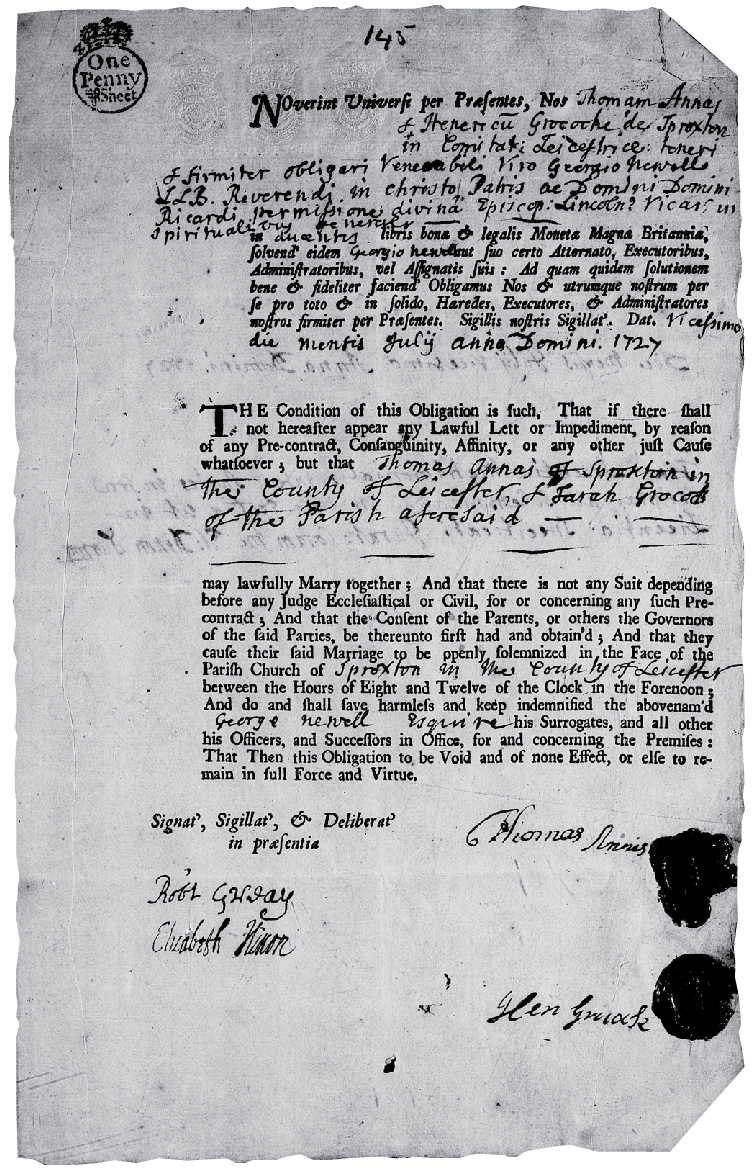 145
One
Penny
⅌ Sheet
NOverint Universi per Præsentes, Nos Thomam Annas
& Henericũ Grococke de Sproxton
in Comitat: Leicestrice: teneri
& firmiter obligari Venerabili Viro Georgio Newell
LLB. Reverendi in Christo Patris ac Domini Domini
Ricardi permissione divinâ Episcop: Lincoln? Vicar: in
Spiritualibus
in ducentis libris bonæ & legalis Monetæ Magnæ Britanniæ,
solvend' eidem Georgio newell aut suo certo Atternato, Executoribus,
Administratoribus, vel Assignatis suis: Ad quam quidem solutionem
bene & fideliter faciend' Obligamus Nos & utrumque nostrum per
se pro toto & in solido, Hæredes, Executores, & Administratores
nostros firmiter per Præsentes. Sigillis nostris Sigillat'. Dat. Vicessimo
die mensis Julij anno Domini. 1727
THE Condition of this Obligation is such, That if there shall
not hereafter appear any Lawful Lett or Impediment, by reason
of any Pre-contract, Consanguinity, Affinity, or any other just Cause
whatsoever; but that Thomas Annas of Sproxton in
the County of Leicester, & Sarah Grocock
of the Parish aforesaid
may lawfully Marry together; And that there is not any Suit depending
before any Judge Ecclesiastical or Civil, for or concerning any such Pre-
contract; And that the Consent of the Parents, or others the Governors
of the said Parties, be thereunto first had and obtain'd; And that they
cause their said Marriage to be openly solemnized in the Face of the
Parish Church of Sproxton in the County of Leicester
between the Hours of Eight and Twelve of the Clock in the Forenoon;
And do and shall save harmless and keep indemnified the abovenam'd
George newell Esquire his Surrogates, and all other
his Officers, and Successors in Office, for and concerning the Premises:
That Then this Obligation to be Void and of none Effect, or else to re-
main in full Force and Virtue.
Signat', Sigillat', & Deliberat'
in præsentia
Thomas Annis
Robt
Elizabeth Hixon
Hen